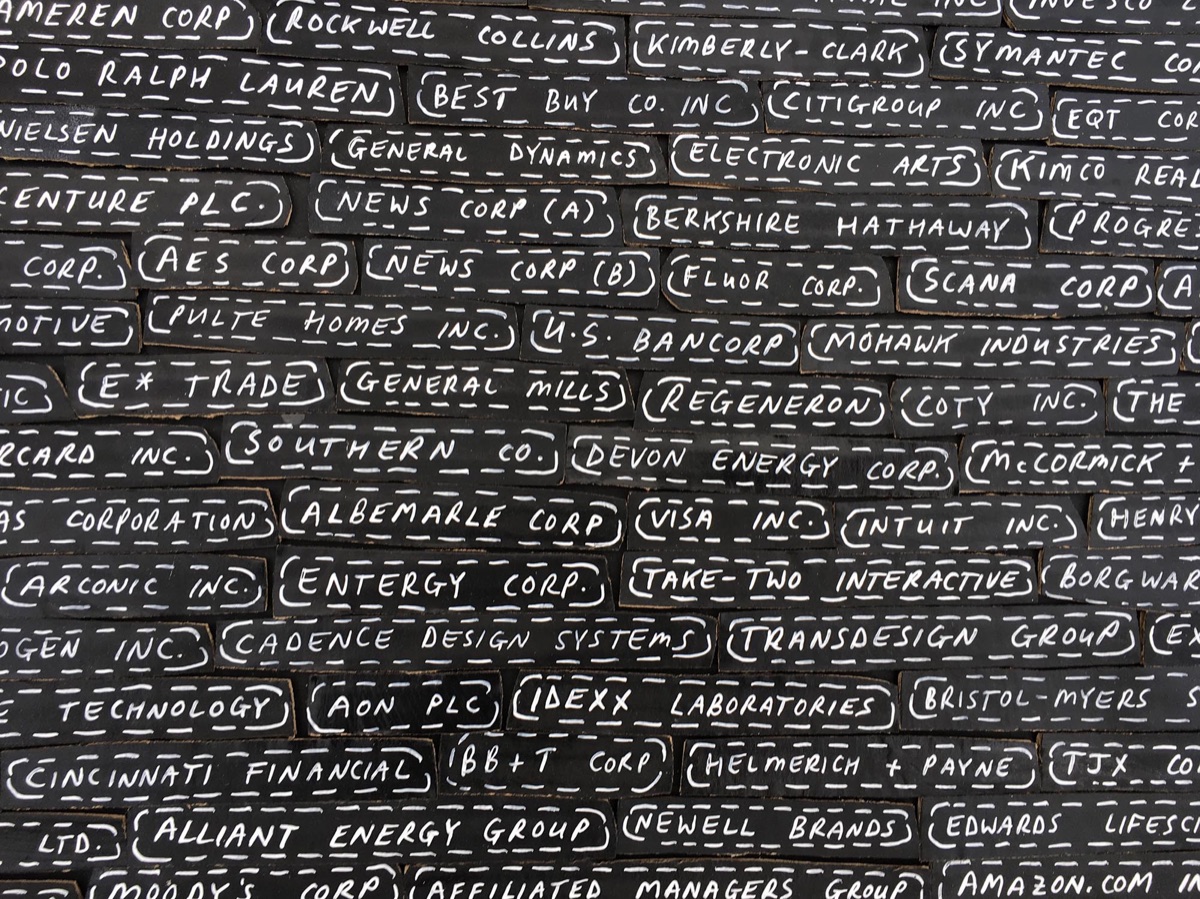 AMEREN CORP ROCKWELL COLLINS KIMBERLY-CLARK SYMANTEC INC INVESCO
POLO RALPH LAUREN BEST BUY CO. INC CITIGROUP INC EQT COR
NIELSEN HOLDINGS GENERAL DYNAMICS ELECTRONIC ARTS KIMCO REAL
CENTURE PLC. NEWS CORP (A) BERKSHIRE HATHAWAY PROGRE
CORP. AES CORP NEWS CORP (B) FLUOR CORP. SCANA CORP A
MOTIVE PULTE HOMES INC. U.S. BANCORP MOHAWK INDUSTRIES
TIC E* TRADE GENERAL MILLS REGENERON COTY INC. THE
RCARD INC. SOUTHERN CO. DEVON ENERGY CORP. McCORMICK +
AS CORPORATION ALBEMARLE CORP VISA INC. INTUIT INC. HENRY
ARCONIC INC. ENTERGY CORP. TAKE-TWO INTERACTIVE BORGWAR
OGEN INC. CADENCE DESIGN SYSTEMS TRANSDESIGN GROUP E
E TECHNOLOGY AON PLC IDEXX LABORATORIES BRISTOL-MYERS S
CINCINNATI FINANCIAL BB+T CORP HELMERICH + PAYNE TJX CO
LTD. ALLIANT ENERGY GROUP NEWELL BRANDS EDWARDS LIFESC
MOODY'S CORP AFFILIATED MANAGERS GROUP AMAZON.COM IN